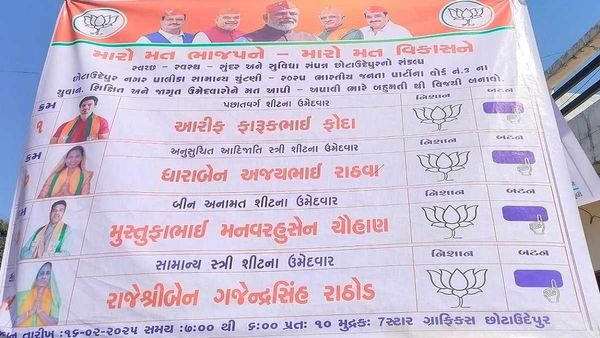 મારો મત ભાજપને – મારો મત વિકાસને
સ્વચ્છ - સ્વસ્થ - સુંદર અને સુવિધા સંપન્ન છોટાઉદેપુરનો સંકલ્પ
છોટાઉદેપુર નગર પાલીકા સામાન્ય ચુંટણી - ૨૦૨૫ ભારતીય જનતા પાર્ટીના વોર્ડ નં.3 ના
યુવાન, શિક્ષિત અને જાગૃત ઉમેદવારોને મત આપી - અપાવી ભારે બહુમતી થી વિજયી બનાવો.
ક્રમ પછાતવર્ગ શીટના ઉમેદવાર નિશાન બટન
૧ આરીફ ફારૂકભાઈ ફોદા
ક્રમ અનુસુચિત આદિજાતિ સ્ત્રી શીટના ઉમેદવાર નિશાન બટન
ધારાબેન અજયભાઈ રાઠવા
બીન અનામત શીટના ઉમેદવાર નિશાન બટન
મુસ્તુફાભાઈ મનવરહુસેન ચૌહાણ
સામાન્ય સ્ત્રી શીટના ઉમેદવાર નિશાન બટન
રાજેશ્રીબેન ગજેન્દ્રસિંહ રાઠોડ
તારીખ :૧૬-૦૨-૨૦૨૫ સમય :૭:૦૦ થી ૬:૦૦ પ્રત: ૧૦ મુદ્રક: 7સ્ટાર ગ્રાફિક્સ છોટાઉદેપુર